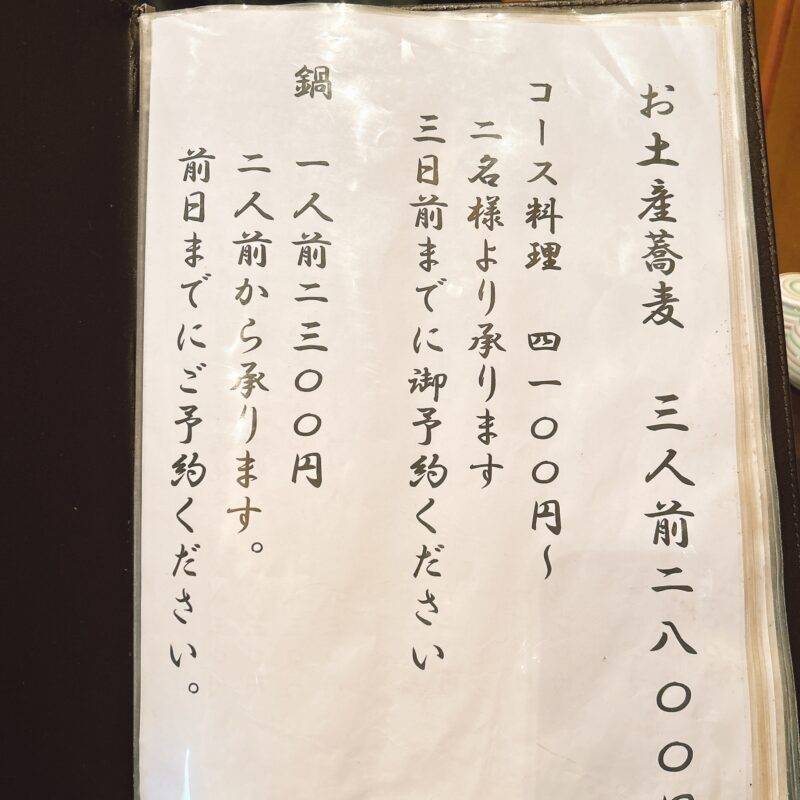 お土産蕎麦　三人前二八〇〇円
コース料理　四一〇〇円〜
二名様より承ります
三日前までに御予約ください
鍋　一人前二三〇〇円
二人前から承ります。
前日までにご予約ください。